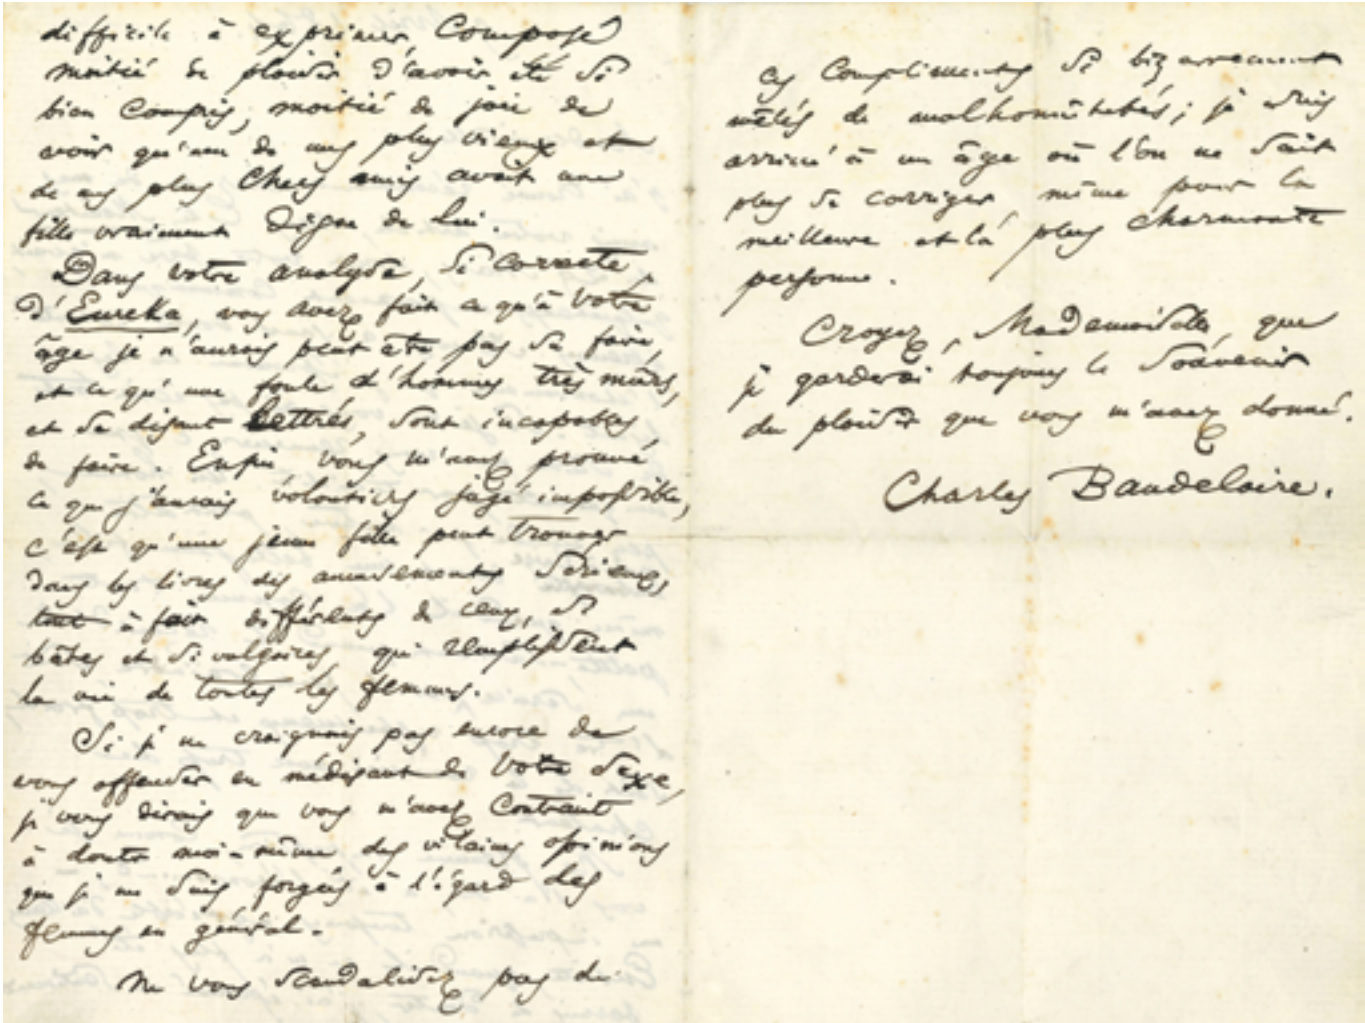 difficile à exprimer, composé
moitié de plaisir d'avoir été si
bien compris, moitié de joie de
voir qu'un de mes plus vieux et
de mes plus chers amis avait une
fille vraiment digne de lui.
Dans votre analyse, si correcte,
d'Eureka, vous avez fait ce qu'à votre
âge je n'aurais peut être pas su faire,
et ce qu'une foule d'hommes très mûrs,
et se disant lettrés, sont incapables
de faire. Enfin vous m'avez prouvé
ce que j'aurais volontiers jugé impossible,
c'est qu'une jeune fille peut trouver
dans les livres des amusements sérieux,
tout à fait différents de ceux, si
bêtes et si vulgaires, qui remplissent
la vie de toutes les femmes.
Si je ne craignais pas encore de
vous offenser en médisant de votre sexe,
je vous dirais que vous m'avez contraint
à douter moi-même des vilaines opinions
que je me suis forgées à l'égard des
femmes en général.
Ne vous scandalisez pas de
ces compliments si bizarrement
mêlés de malhonnêtetés; je suis
arrivé à un âge où l'on ne sait
plus se corriger même pour la
meilleure et la plus charmante
personne.
Croyez, Mademoiselle, que
je garderai toujours le souvenir
du plaisir que vous m'avez donné.
Charles Baudelaire.